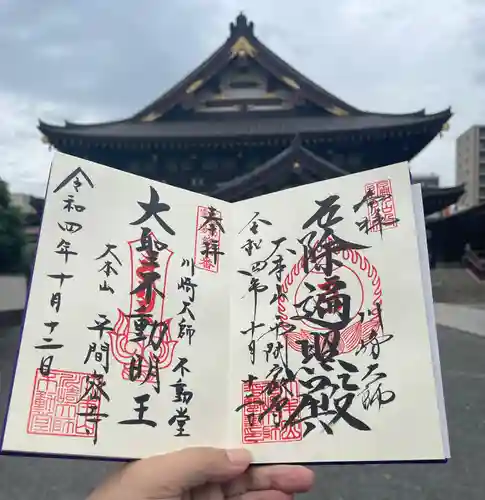 奉拝
川崎大師
厄除遍照殿
大本山平間寺
令和四年十月十二日
奉拝
川崎大師不動堂
大聖不動明王
大本山 平間寺
令和四年十月十二日